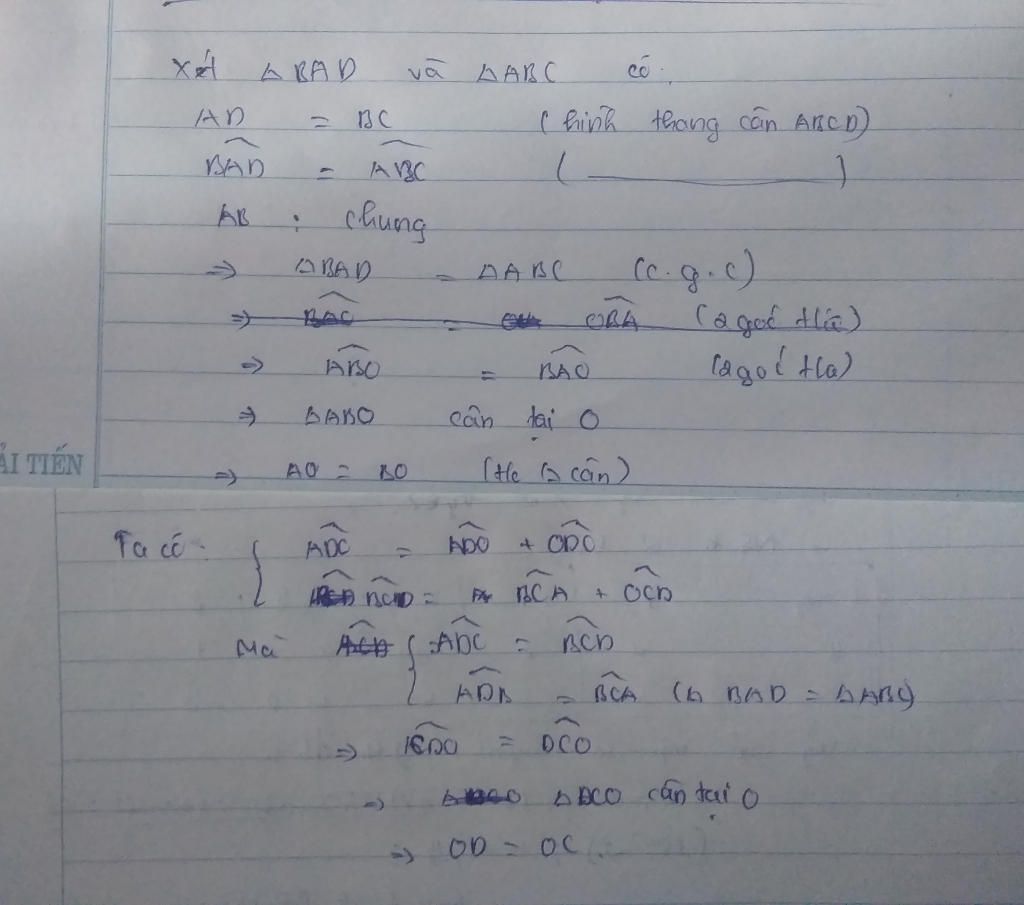 Xét △BAD và △ABC có.
AD = BC (hình thang cân ABCD)
BAD = ABC ( ——— )
AB : chung
⇒ △BAD = △ABC (c.g.c)
⇒ BAO = OBA (2 góc t/ư)
⇒ ABO = BAO (2 góc t/ư)
⇒ △ABO cân tại O
ẢI TIẾN
⇒ AO = BO (t/c △ cân)
Ta có. { ADC = ADO + ODC
BCD = BCA + OCD
Mà { ADC = BCD
ADB = BCA (△ BAD = △ABC)
⇒ CDO = DCO
⇒ △DCO cân tại O
⇒ OD = OC.